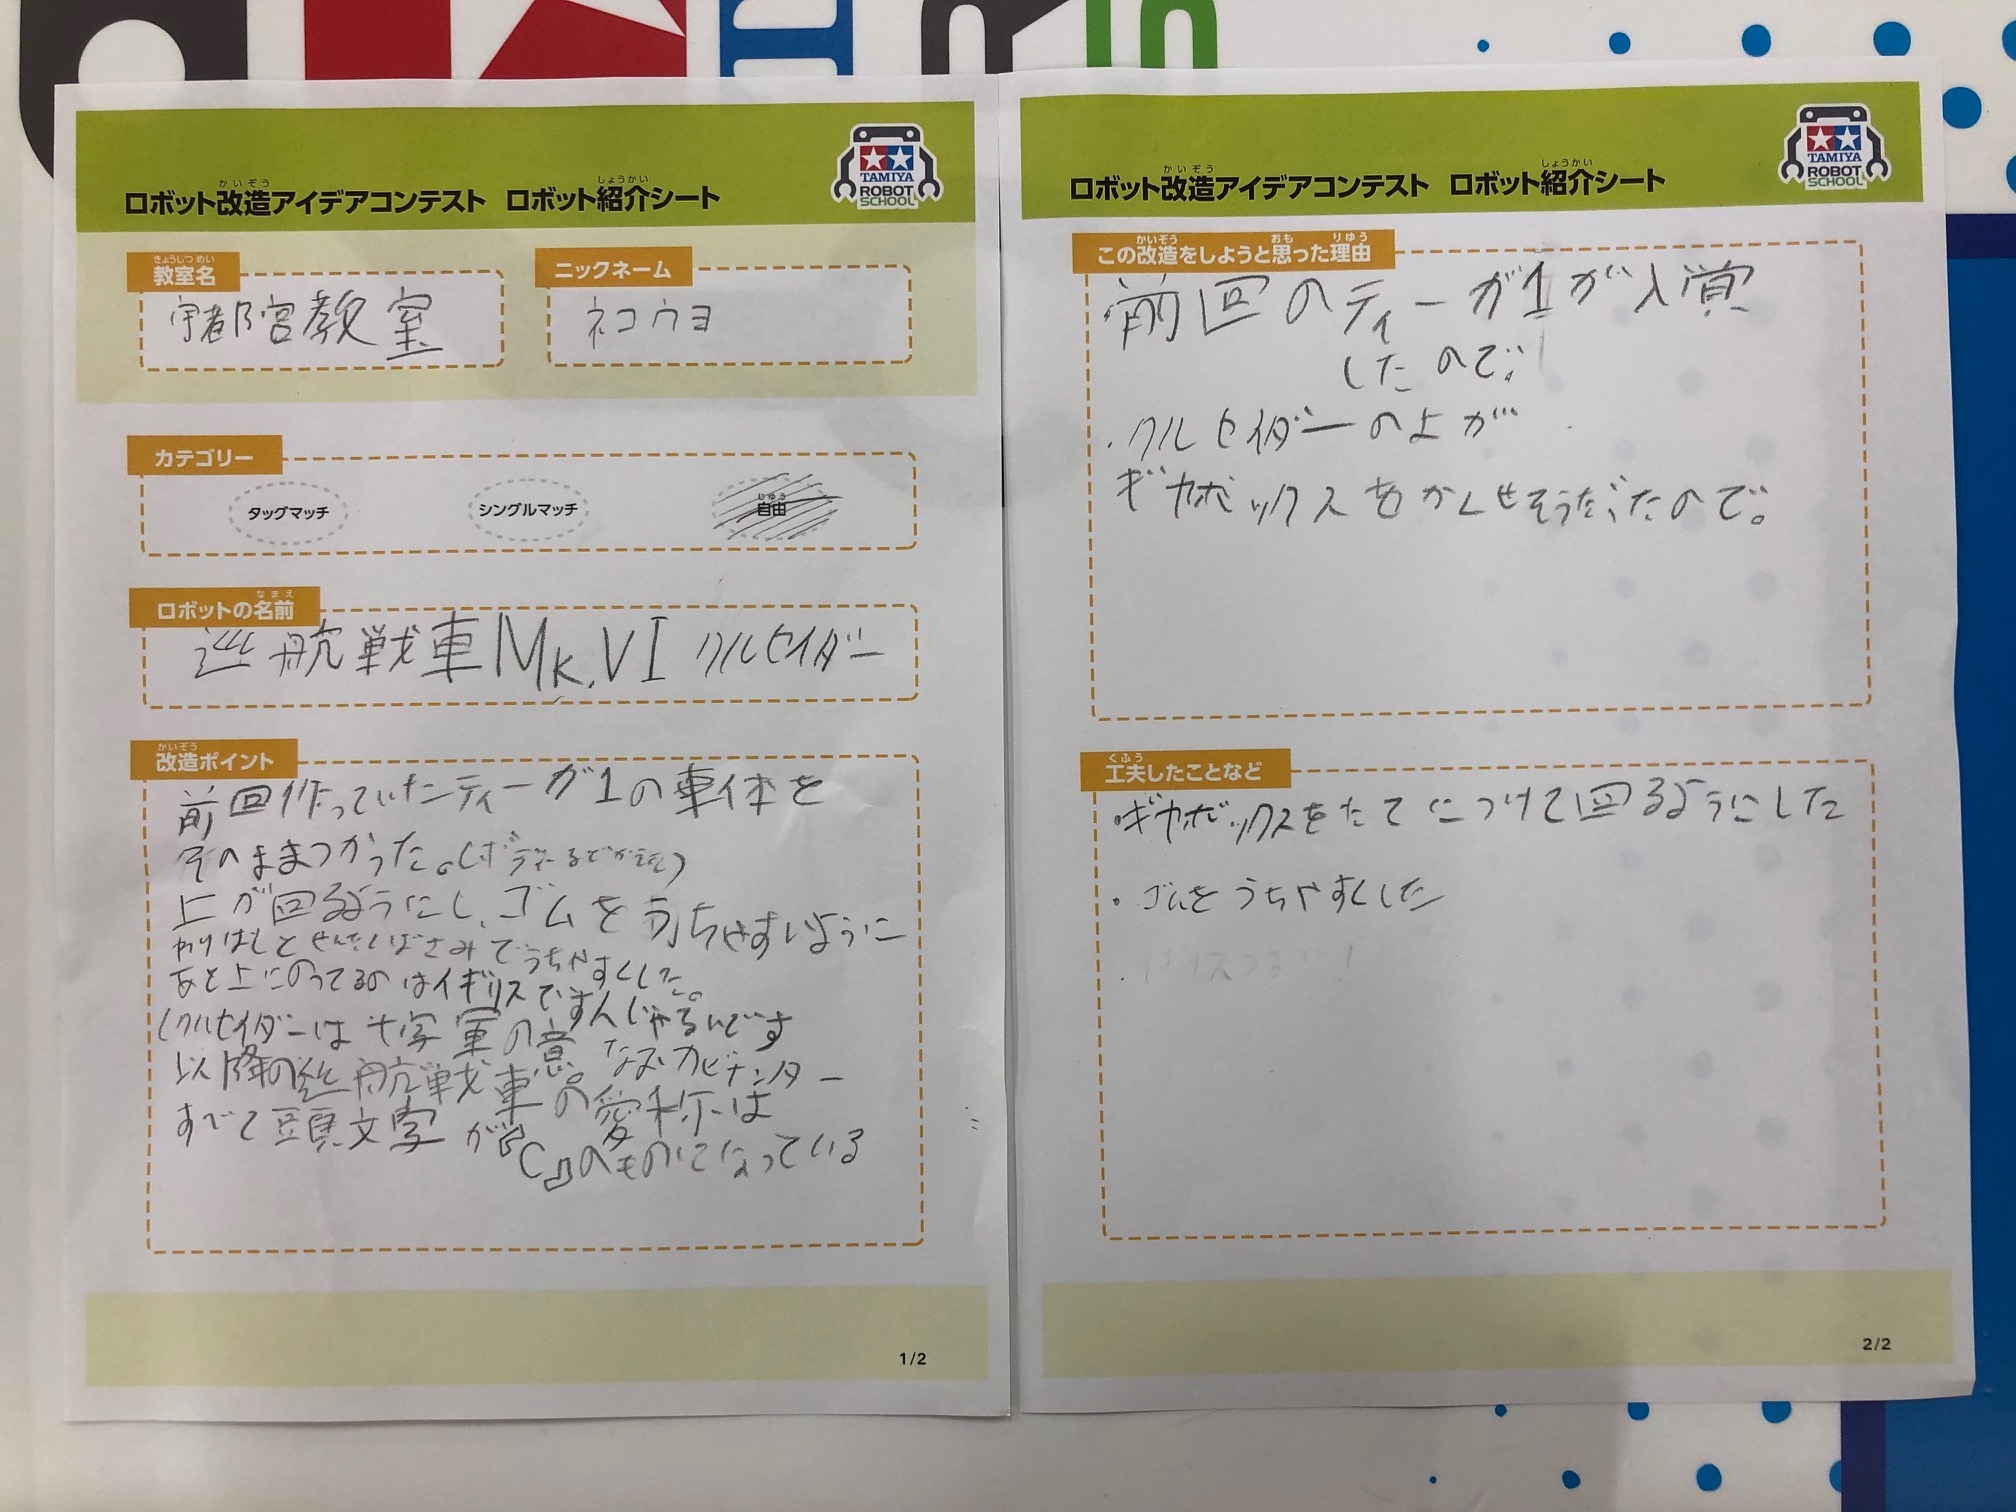 TAMIYA
ROBOT
SCHOOL
かいぞう しょうかい
ロボット改造アイデアコンテスト ロボット紹介シート
きょうしつ めい
教室名
宇都宮教室
ニックネーム
ネコウヨ
カテゴリー
タッグマッチ
シングルマッチ
じゆう
自由
なまえ
ロボットの名前
巡航戦車Mk.VI クルセイダー
かいぞう
改造ポイント
前回作っていたティーガ1の車体を
そのままつかった。
上が回るようにし、ゴムをうちやすいように
わりばしとせんたくばさみでうちやすくした。
あと上にのってるのはイギリスですんじゃるいです
(クルセイダーは十字軍の意。なおカビナンター
以降の巡航戦車の愛称は
すべて頭文字が『C』のものになっている
1/2
TAMIYA
ROBOT
SCHOOL
かいぞう しょうかい
ロボット改造アイデアコンテスト ロボット紹介シート
かいぞう おも りゆう
この改造をしようと思った理由
前回のティーガ1が入賞
したので!
・クルセイダーの上が
ギヤボックスをかくせそうだったので。
くふう
工夫したことなど
・ギヤボックスをたてにつけて回るようにした
・ゴムをうちやすくした
2/2